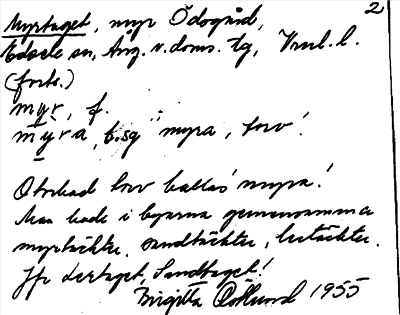 2
Myrtaget, myr Ödsgård,
Edsele sn, Ång. v. doms. tg, Vnrl. l.
(forts.)
myr, f.
myra, b. sg "myra, torv!
Obrukad torv kallas 'myra'!
Man hade i byarna gemensamma
myrtäkter, sandtäkter, lertäkter.
Jfr Lertaget, Sandtaget!
Birgitta 1955